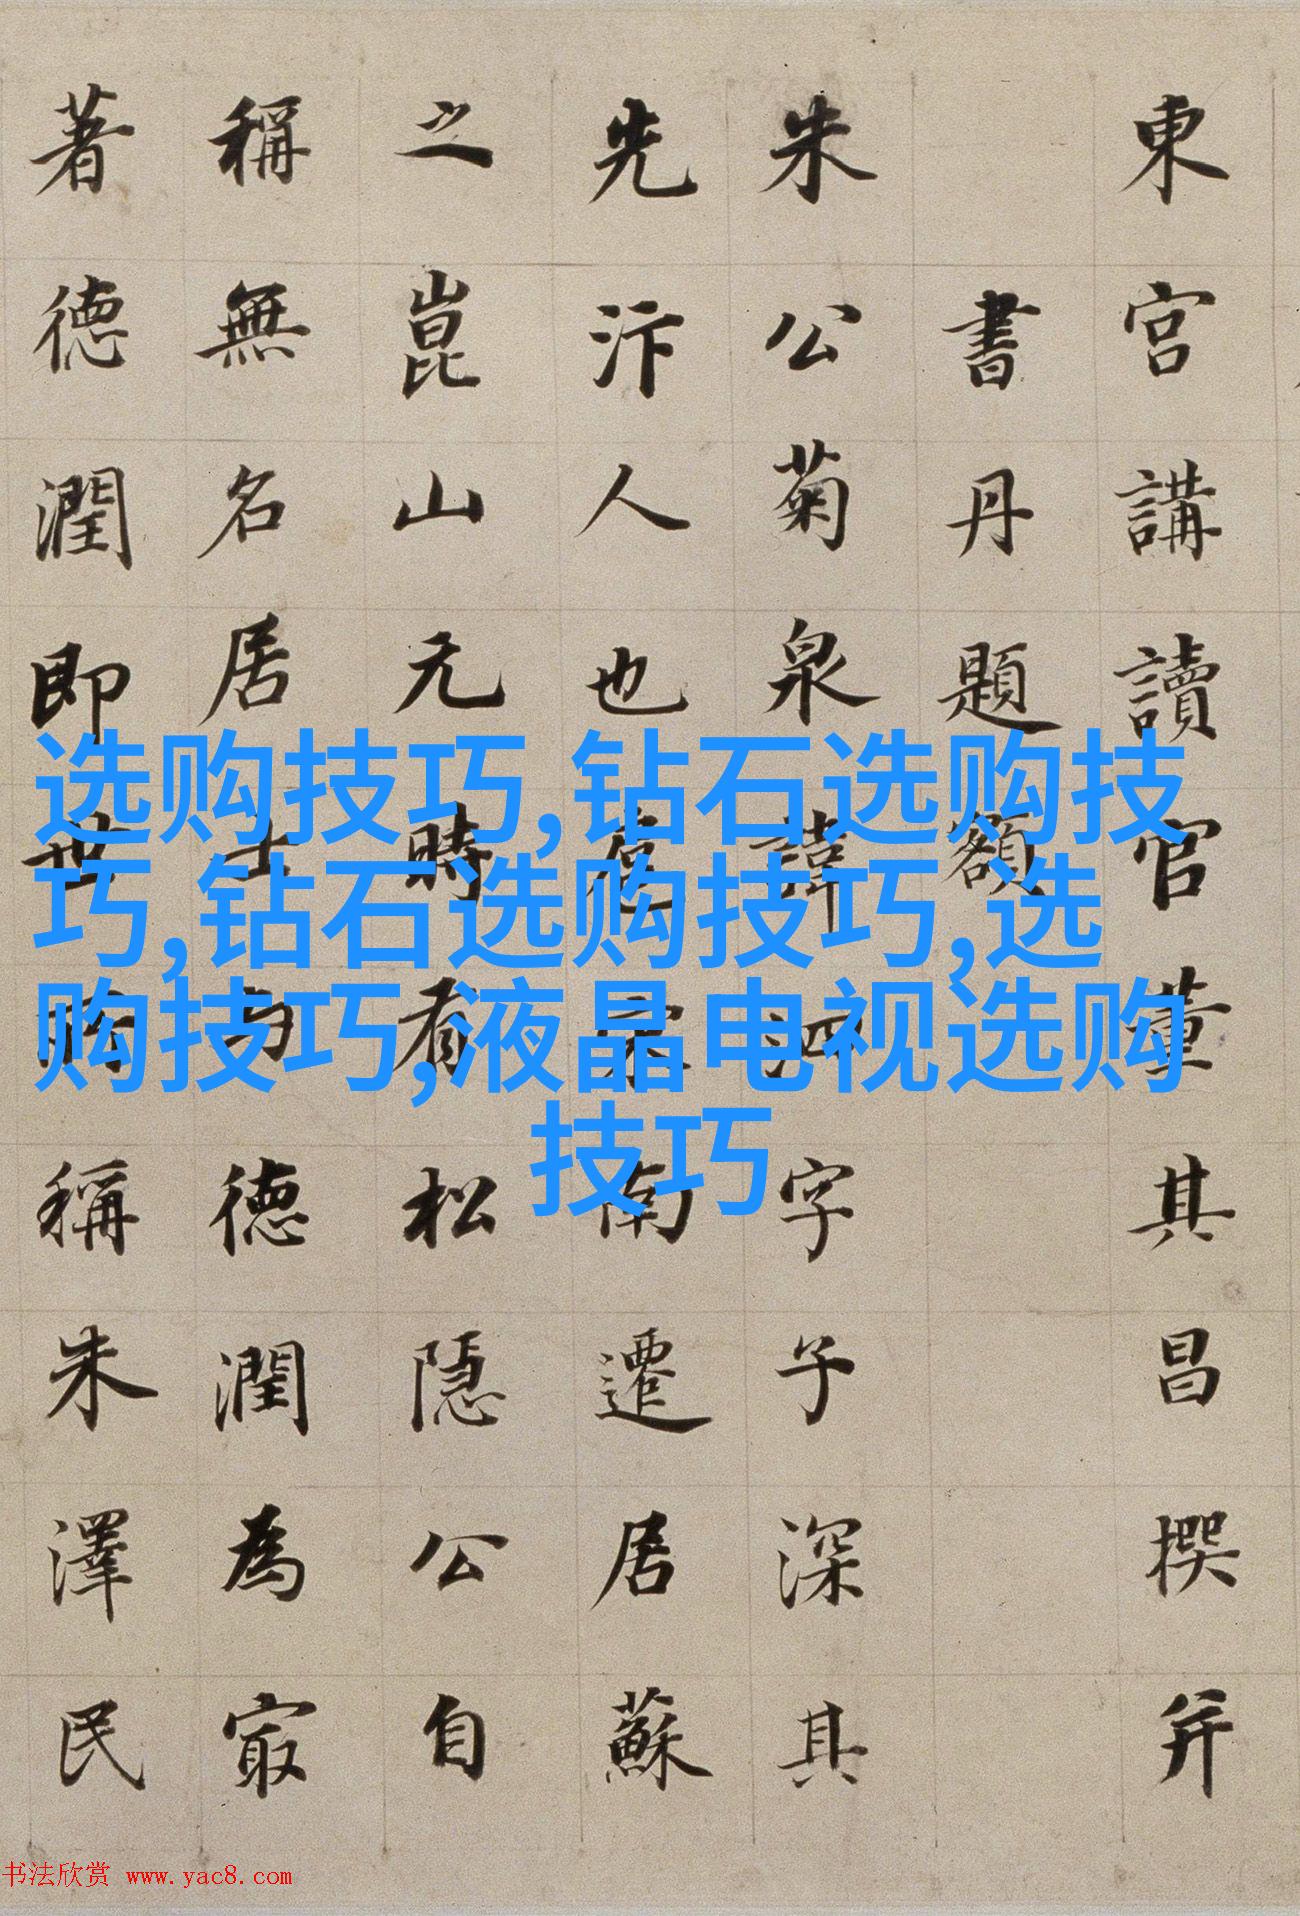 東宮講讀官董其昌撰并
書丹題額
朱公菊泉諱泗字子深其
先汴人也扈宋南遷居蘇
之崑山元時有松隱公自
稱無名居士与德潤為㝡
著德潤即世所稱朱澤民
选购技巧,钻石选购技
巧,钻石选购技巧,选
购技巧,液晶电视选购
技巧
书法欣赏 www.yac8.com